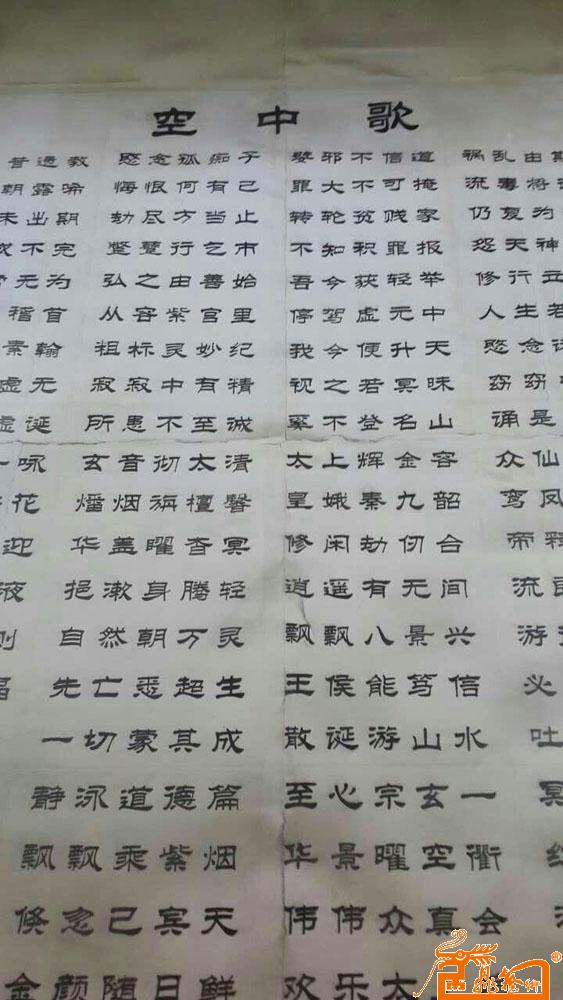 空中歌
教 愍念孤痴子 弊邪不信道 祸乱由
朝露晞 悔恨何有已 罪大不可掩 流毒将
未出期 劫尽方当止 转轮贫贱家 仍复为
不完 躄躄行乞市 不知积罪报 怨天神
无为 弘之由善始 吾今获轻举 修行立
稽首 从容紫宫里 停驾虚无中 人生若
素翰 祖标灵妙纪 我今便升天 愍念
虚无 寂寂中有精 视之若冥昧 窈窈
虚诞 所患不至诚 奚不登名山 诵是
一咏 玄音彻太清 太上辉金容 众仙
花 燔烟旃檀馨 皇娥奏九韶 鸾凤
迎 华盖曜杳冥 修闲劫仞台 帝释
液 挹漱身腾轻 逍遥有无间 流
则 自然朝万灵 飘飘八景兴 游
先亡悉超生 王侯能笃信 必
一切蒙其成 散诞游山水 吐
静泳道德篇 至心宗玄一 冥
飘飘乘紫烟 华景曜空衢
倏忽已宾天 伟伟众真会
金颜随日鲜 欢乐太